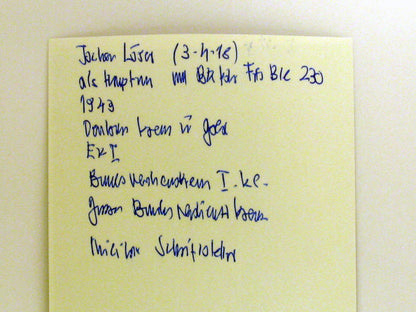 Jochen Löser (3-4-18)
als Hauptm und Btl Fhr Füs Btl 230
1943
Deutsches Kreuz in Gold
EK I
Bundesverdienstkreuz I. Kl.
Grosses Bundesverdienstkreuz
Militär Schriftsteller